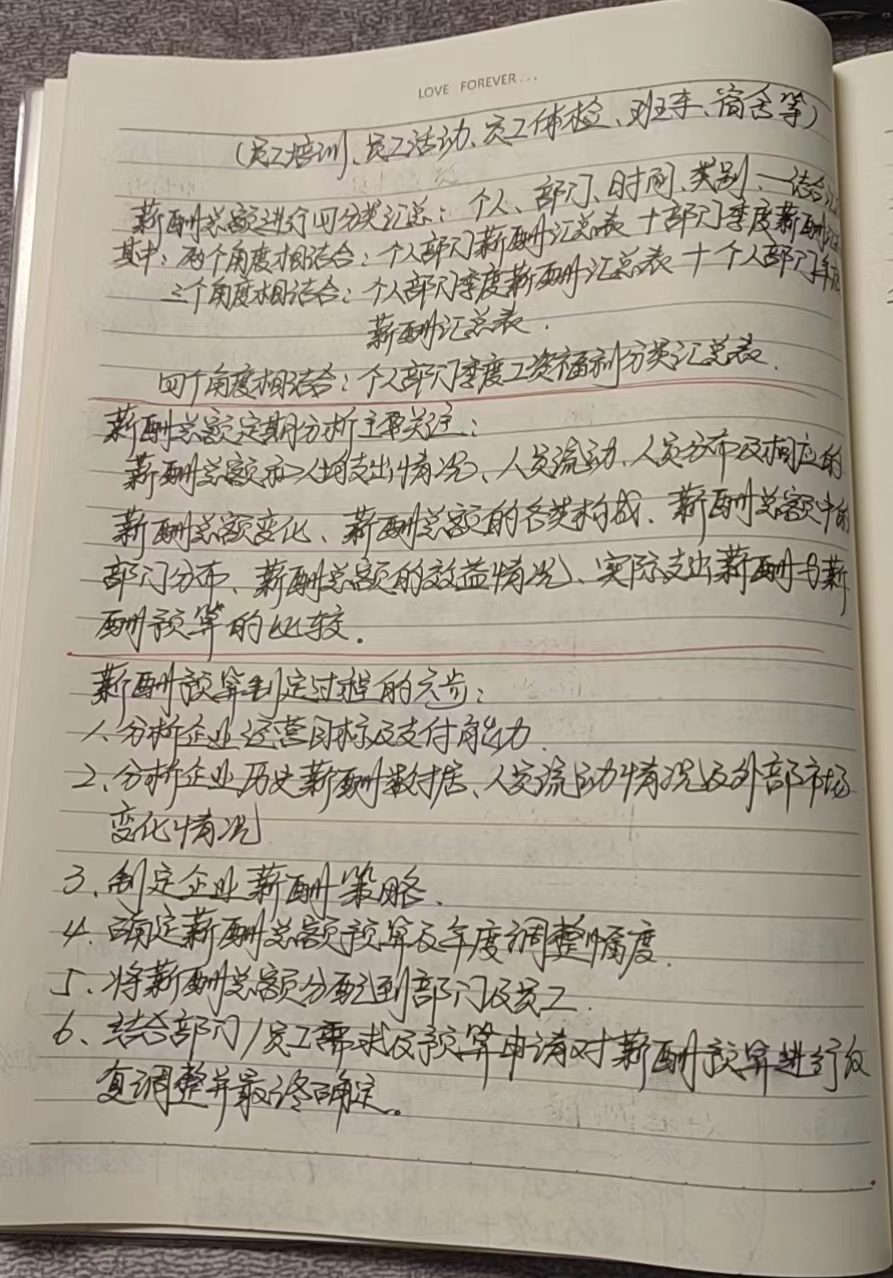 LOVE FOREVER...
(员工培训、员工活动、员工体检、班车、宿舍等)
薪酬总额进行四分类汇总：个人、部门、时间、类别、一结合汇
其中：两个角度相结合：个人部门薪酬汇总表十部门季度薪酬汇
三个角度相结合：个人部门季度薪酬汇总表十个人部门年度
薪酬汇总表．
四个角度相结合：个人部门季度工资福利分类汇总表．
薪酬总额定期分析主要关注：
薪酬总额的支出情况、人员流动、人员分布及相应的
薪酬总额变化、薪酬总额的各类构成、薪酬总额中的
部门分布、薪酬总额的效益情况、实际支出薪酬与薪
酬预算的比较．
薪酬预算制定过程的六步：
1、分析企业运营目标及支付能力．
2、分析企业历史薪酬数据、人员流动情况及外部市场
变化情况
3、制定企业薪酬策略．
4、确定薪酬总额预算及年度调整幅度．
5、将薪酬总额分配到部门及员工．
6、结合部门/员工需求及预算申请对薪酬预算进行反
复调整并最终确定。